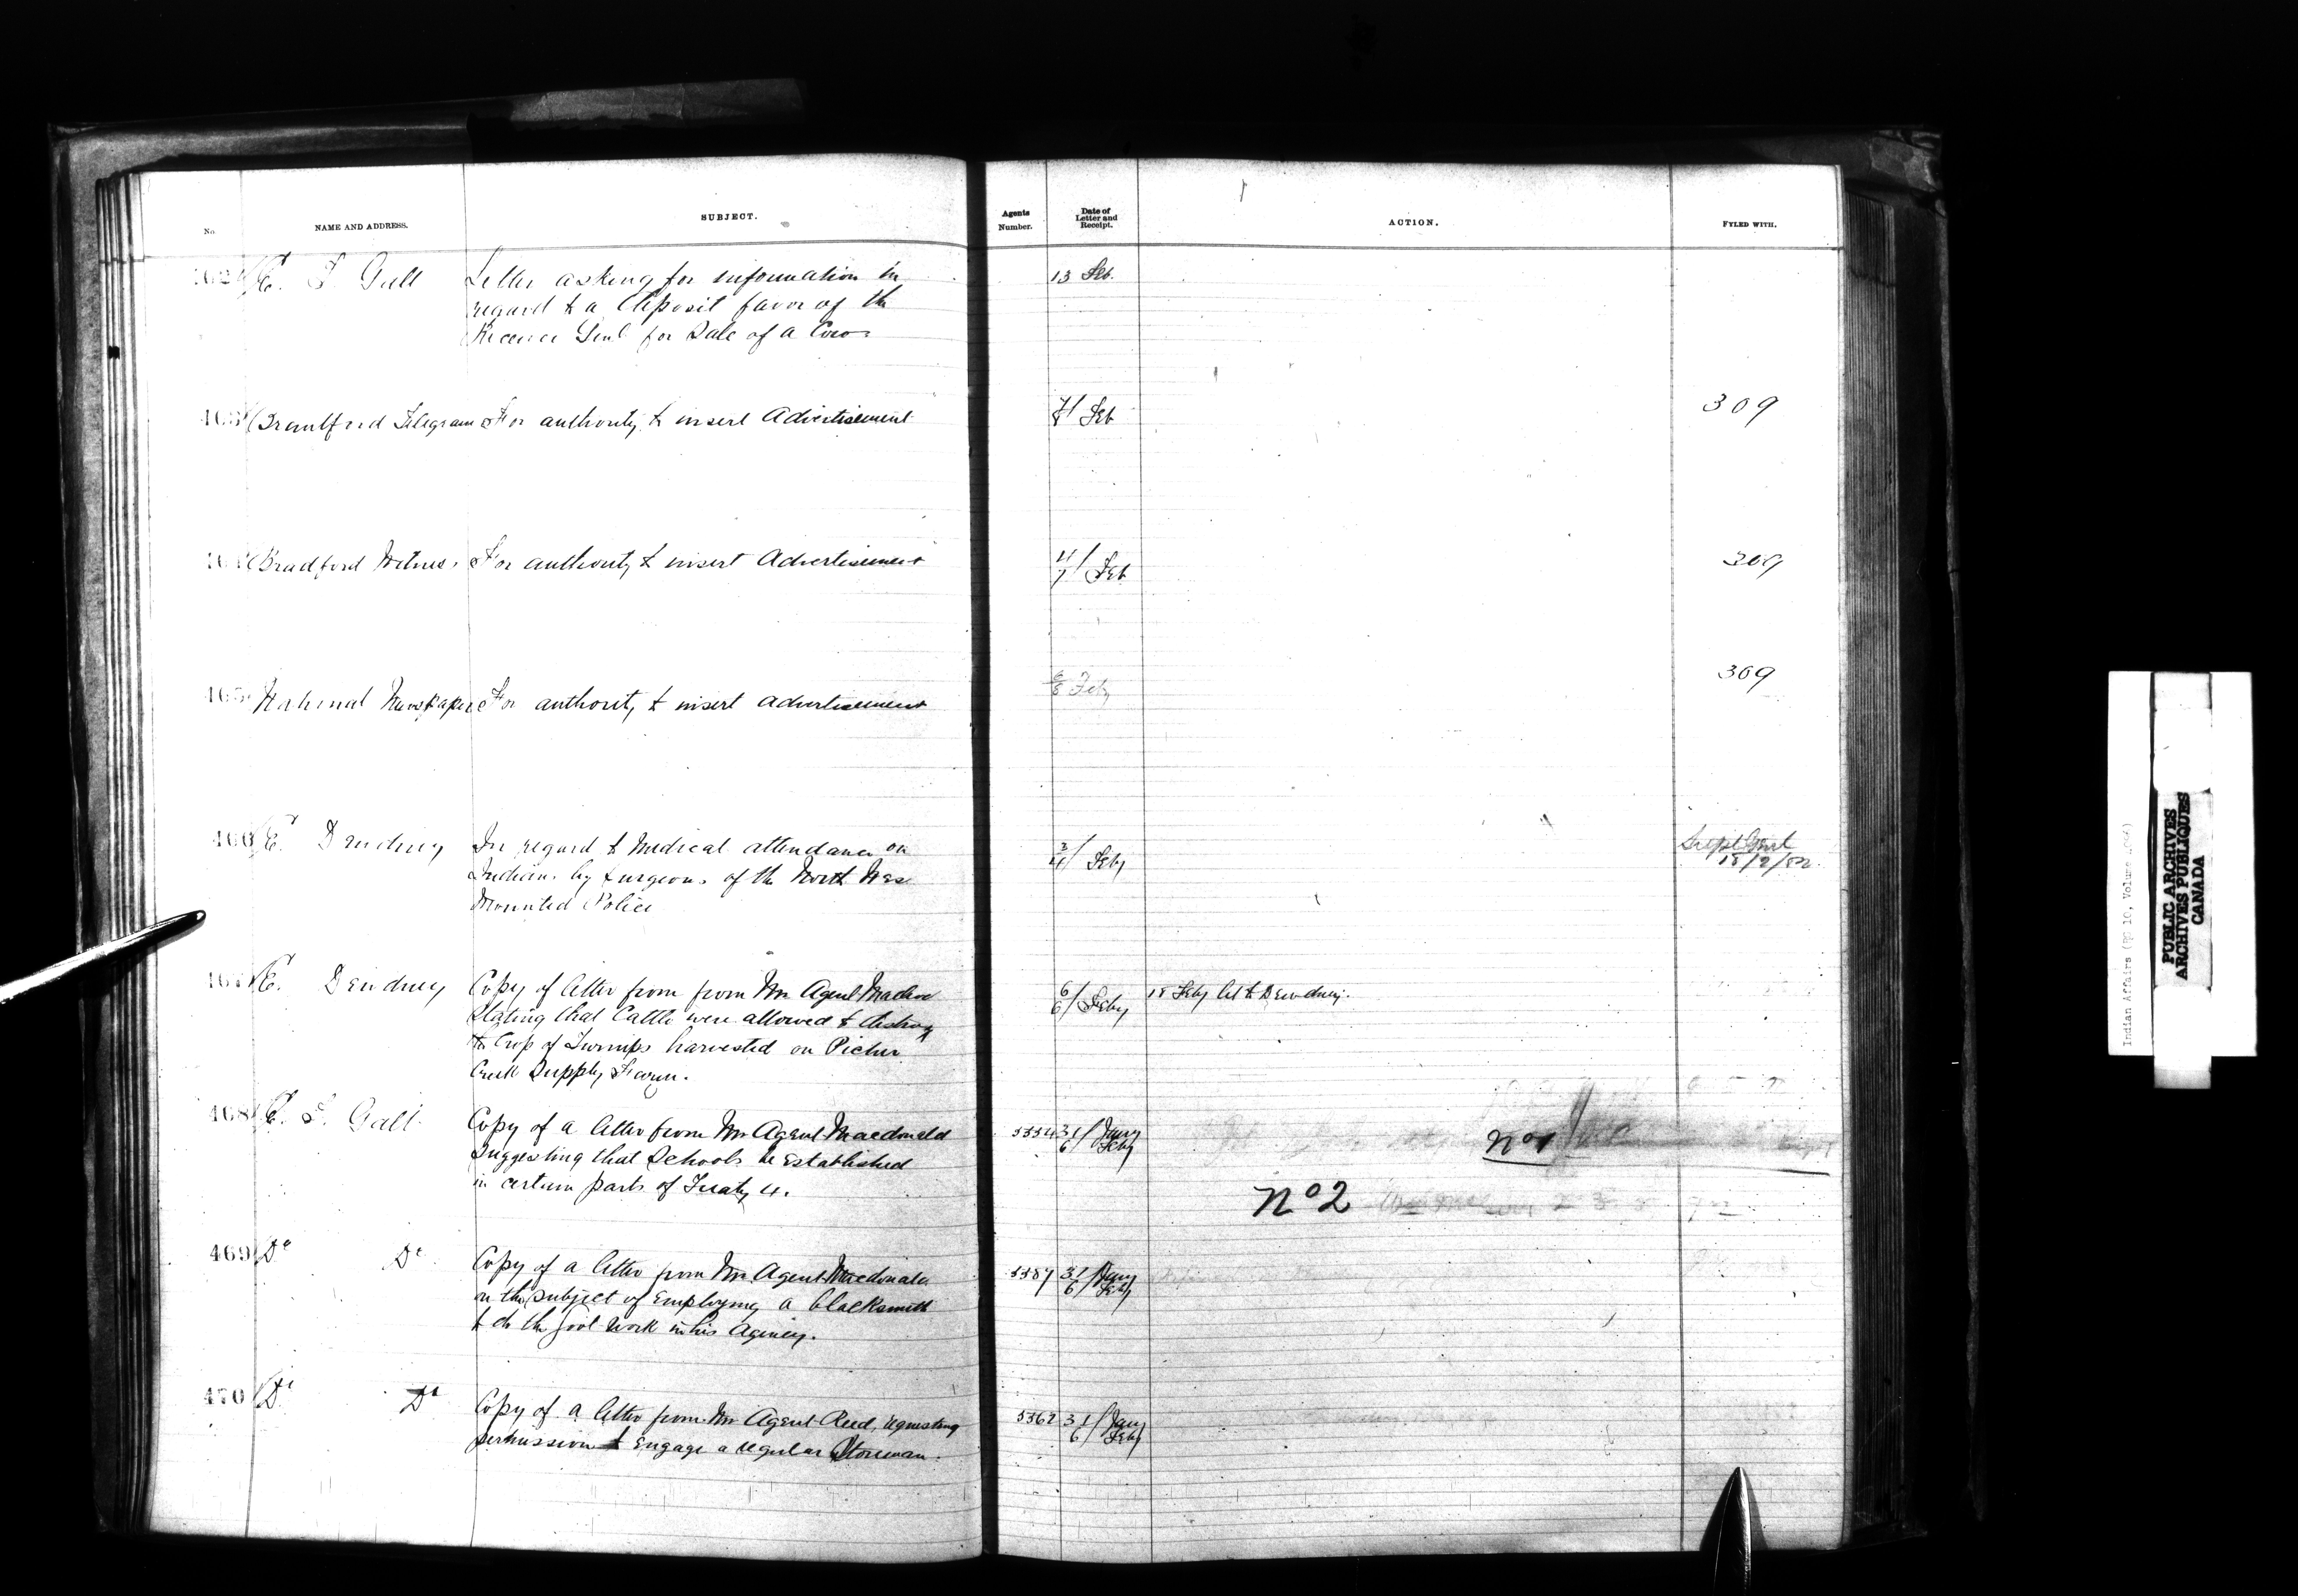 No.
NAME AND ADDRESS.
SUBJECT.
Agents Number.
Date of Letter and Receipt.
ACTION.
FYLED WITH.
E. T. Galt
Letter asking for information in
regard to a deposit favor of the
Receiver Genl for Sale of a Cow
13 Feb.
463
Brantford Telegram
For authority to insert Advertisement
7/ Feb
309
Bradford Witness
For authority to insert Advertisement
4/7 Feb
309
465
National Newspaper
For authority to insert advertisement
6/8 Feby
309
466
E. Dewdney
In regard to Medical attendance on
Indians by Surgeons of the North West
Mounted Police
2/4 Feby
Supt Genl
18/2/82.
467
E. Dewdney
Copy of letter from from Mr Agent
Stating that Cattle were allowed to destroy
the Crop of Turnips harvested on Picher
Creek Supply Farm.
6/6 Feby
18 Feby let to Dewdney.
468
E. T. Galt
Copy of a letter from Mr Agent Macdonald
Suggesting that Schools be Established
in certain parts of Treaty 4.
5354
31/6 Jany Feby
No 1
No 2
469
Do Do
Copy of a letter from Mr Agent Macdonald
on the subject of Employing a blacksmith
to do the work in his Agency.
5387
31/6 Jany Feby
470
Do Do
Copy of a letter from Mr Agent Reed, requesting
permission to Engage a regular Storeman.
5362
31/6 Jany Feby
Indian Affairs (RG 10, Volume
PUBLIC ARCHIVES
ARCHIVES PUBLIQUES
CANADA